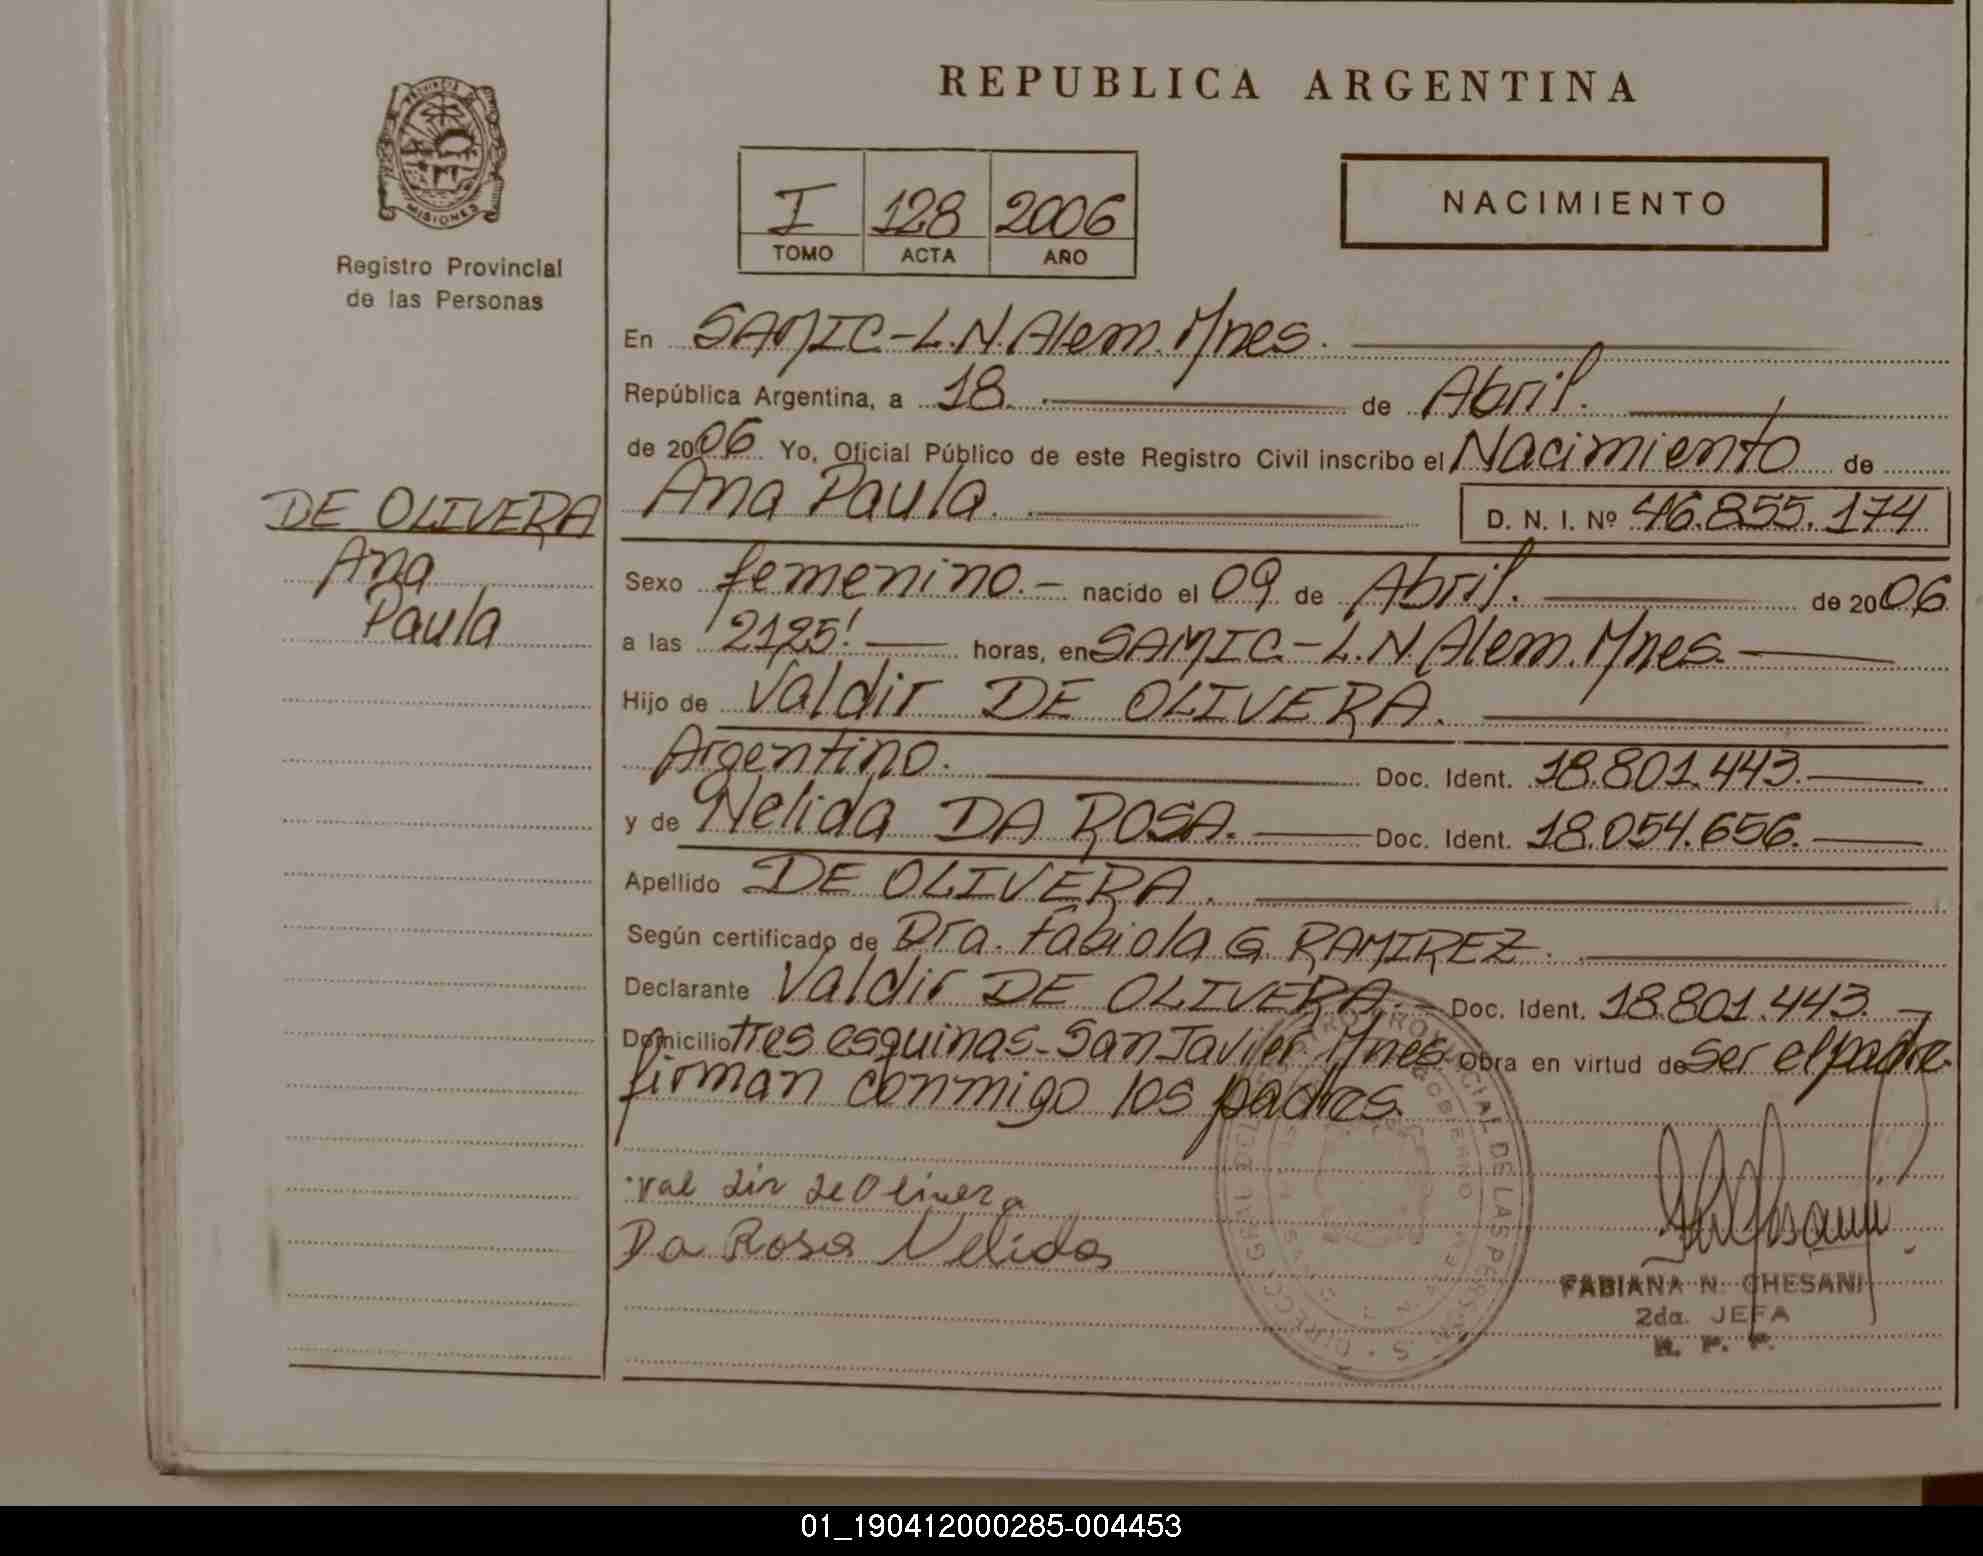 REPUBLICA ARGENTINA
PROVINCIA DE
MISIONES
Registro Provincial
de las Personas
I 128 2006
TOMO ACTA AÑO
NACIMIENTO
En SAMIC-L.N.Alem.Mnes.
República Argentina, a 18. de Abril.
de 2006 Yo, Oficial Público de este Registro Civil inscribo el Nacimiento de
Ana Paula. D. N. I. Nº 46.855.174
DE OLIVERA
Ana
Paula
Sexo femenino.- nacido el 09 de Abril. de 2006
a las 21,25' horas, en SAMIC-L.N.Alem.Mnes.
Hijo de Valdir DE OLIVERA.
Argentino. Doc. Ident. 18.801.443.
y de Nelida DA ROSA. Doc. Ident. 18.054.656.
Apellido DE OLIVERA.
Según certificado de Dra. Fabiola G. RAMIREZ.
Declarante Valdir DE OLIVERA.- Doc. Ident. 18.801.443.
Domicilio tres esquinas-San Javier Mnes Obra en virtud de Ser el padre.
firman conmigo los padres.
val dir de Olivera
Da Rosa Nelida
FABIANA N. CHESANI
2da. JEFA
R. P. P.
01_190412000285-004453